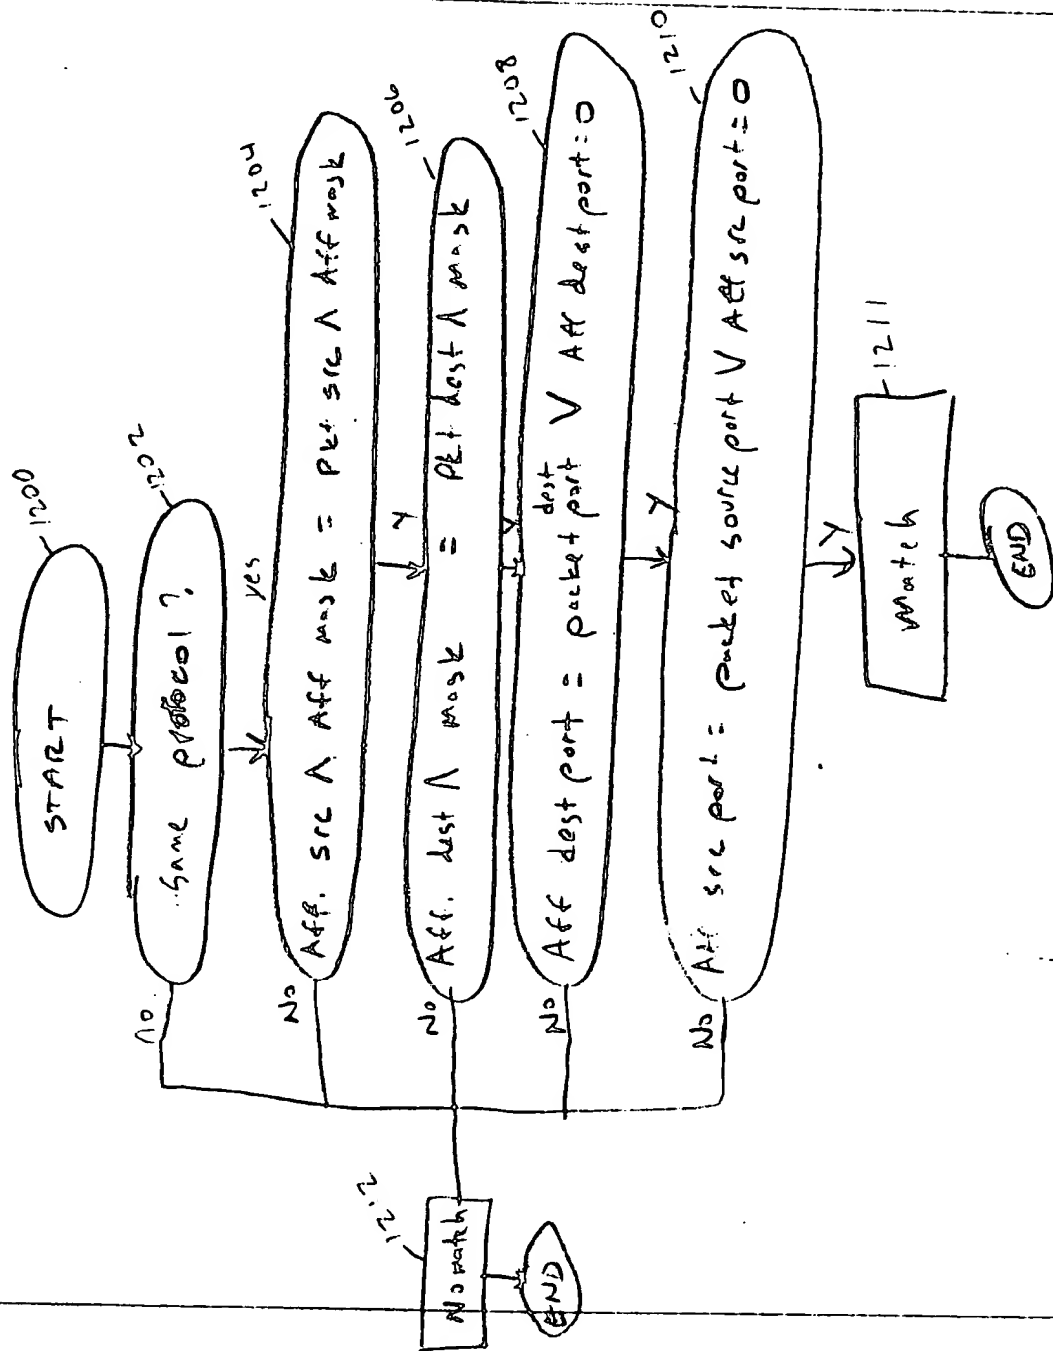 START
1200
Same protocol?
1202
no
yes
Aff. src Λ Aff mask = Pkt src Λ Aff mask
1204
No
Y
Aff. dest Λ mask = Pkt dest Λ mask
1206
No
Y
Aff dest port = packet dest port V Aff dest port=0
1208
No
Y
Aff src port = packet source port V Aff src port=0
1210
No
Y
Match
1211
END
No match
1212
END